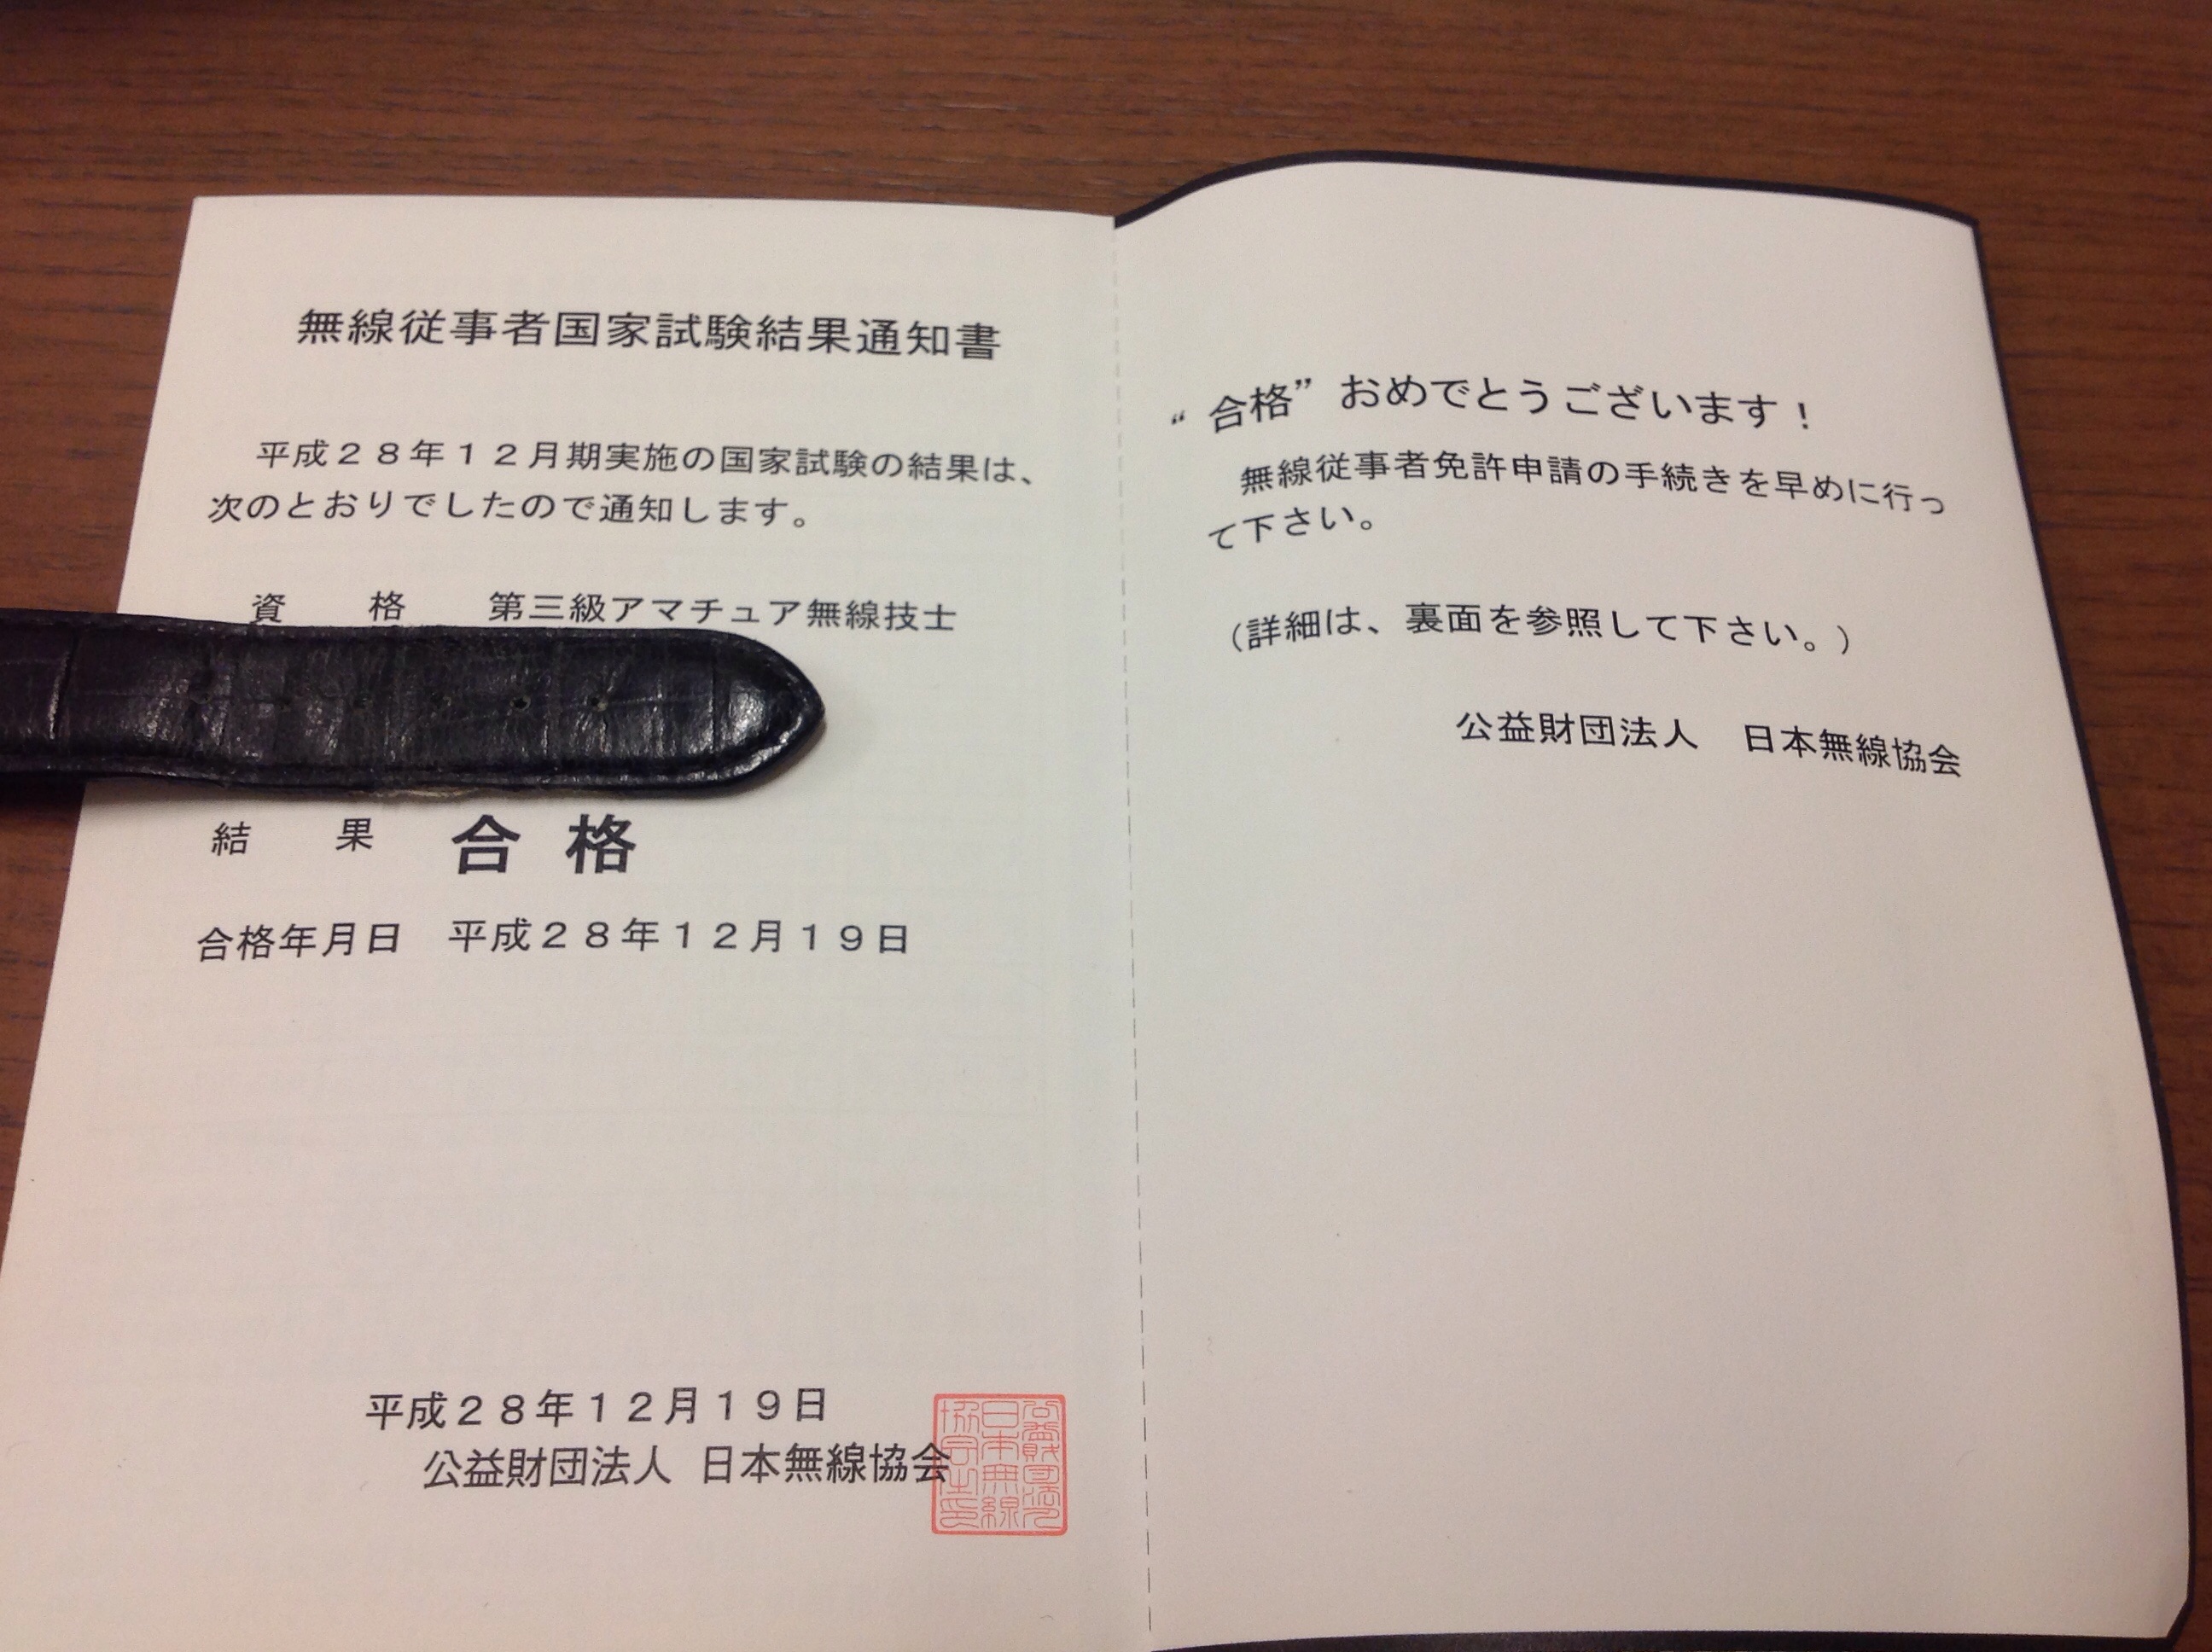 無線従事者国家試験結果通知書
平成２８年１２月期実施の国家試験の結果は、
次のとおりでしたので通知します。
資　　格　　第三級アマチュア無線技士
結　　果　　合 格
合格年月日　平成２８年１２月１９日
平成２８年１２月１９日
公益財団法人 日本無線協会
公益財団法人
日本無線
協会之印
“合格” おめでとうございます！
無線従事者免許申請の手続きを早めに行っ
て下さい。
（詳細は、裏面を参照して下さい。）
公益財団法人　日本無線協会